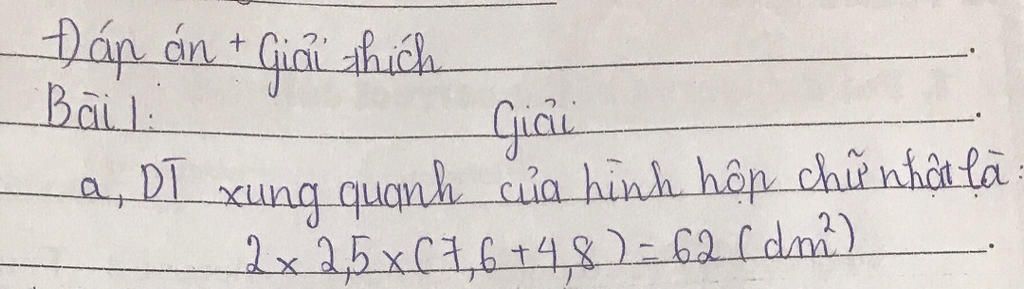 Đáp án + Giải thích
Bài 1:
Giải
a, DT xung quanh của hình hộp chữ nhật là:
2 × 2,5 × (7,6 + 4,8) = 62 (dm²)